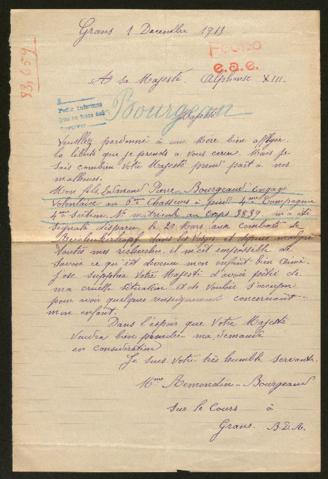 Grans 1 Decembre 1915
Ficha
e.a.e.
A Sa Majesté Alphonse XIII.
Bourgean
Veuillez pardonner à une Mère bien affligée
la liberté que je prends à vous écrire. Mais je
sais combien Votre Majesté prend part à nos
malheurs.
Mon fils Pierre Bourgeaud engagé
Volontaire au Chasseurs à pied 4me Compagnie
4me Section. No matricule au corps 3889 m'a été
signalé disparu, le 20 Mars aux combats de
dans les Vosges, et depuis malgré
toutes mes recherches, il m'est impossible de
savoir ce qu'est devenu mon enfant bien aimé.
J'ose supplier Votre Majesté d'avoir pitié de
ma cruelle situation et de vouloir s'occuper
pour avoir quelques renseignements concernant
mon enfant.
Dans l'espoir que Votre Majesté
Voudra bien prendre ma demande
en considération
Je suis Votre très humble servante.
Mme Remondin-Bourgeaud
Sur le Cours à
Grans. B.D.R.